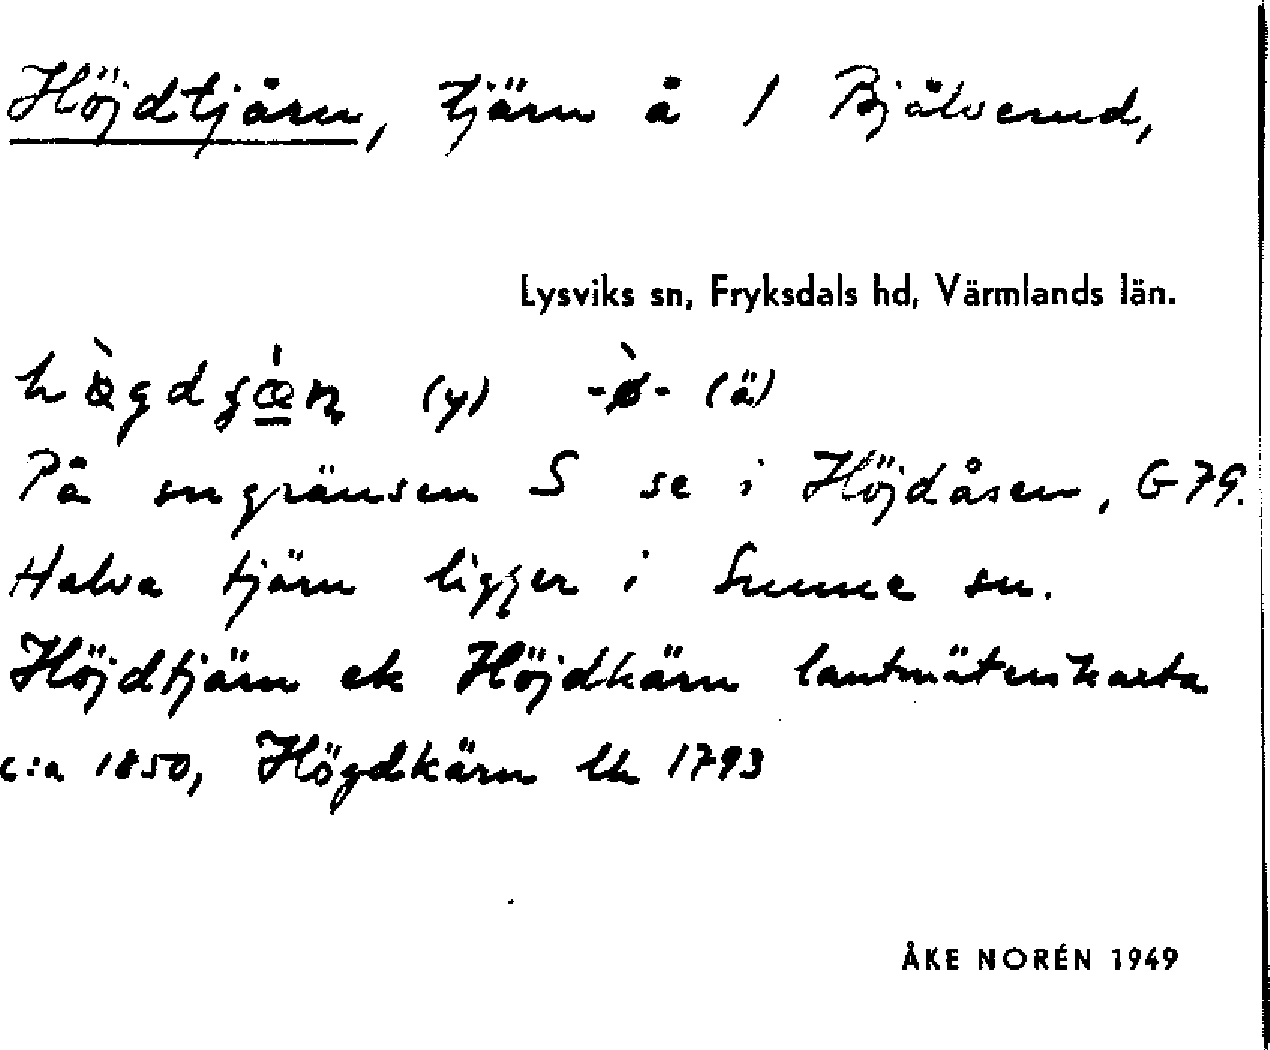 Höjdtjärn, tjärn å 1 Bjälverud,
Lysviks sn, Fryksdals hd, Värmlands län.
(y) -ø̀- (ä)
På sngränsen S se i Höjdåsen, G 79.
Halva tjärn ligger i Sunne sn.
Höjdtjärn ek Höjdkärn lantmäterikarta
c:a 1850, Högdkärn lk 1793
ÅKE NORÉN 1949